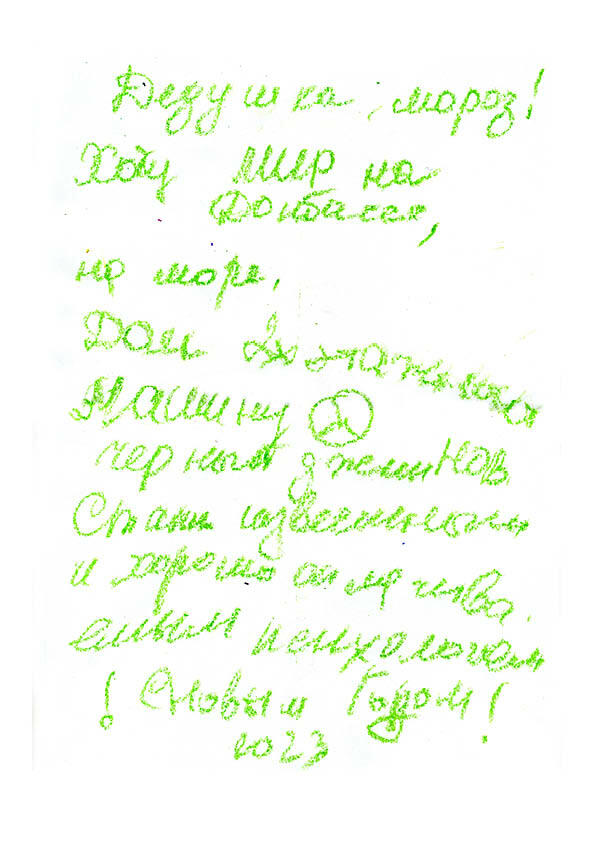 Дедушка, мороз!
Хочу МИР на
Донбассе,
на море,
Дом 2х этажный
Машину
черный джип нов.
Стать известным
и хорошо оплачива
емым психологом
! С новым Годом!
2023